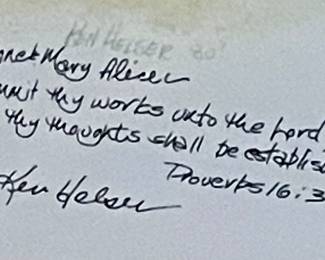 KEN HELSER 80'
Mary Alice
thy works unto the Lord
thy thoughts shall be establis
Proverbs 16:3
Ken Helser